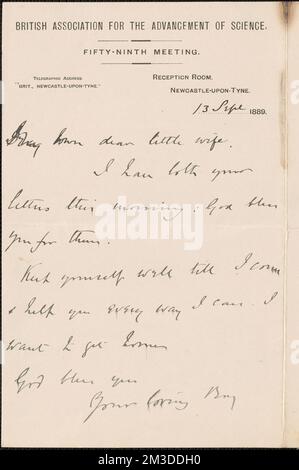 BRITISH ASSOCIATION FOR THE ADVANCEMENT OF SCIENCE.
FIFTY-NINTH MEETING.
TELEGRAPHIC ADDRESS
"BRIT., NEWCASTLE-UPON-TYNE."
RECEPTION ROOM,
NEWCASTLE-UPON-TYNE.
13 Sept 1889.
My own dear little wife.
I have both your
letters this morning: God bless
you for them.
Keep yourself well till I come
& help you every way I can. I
want to get home
God bless you
Your loving Boy
alamy
Image ID: 2M3DDH0
www.alamy.com